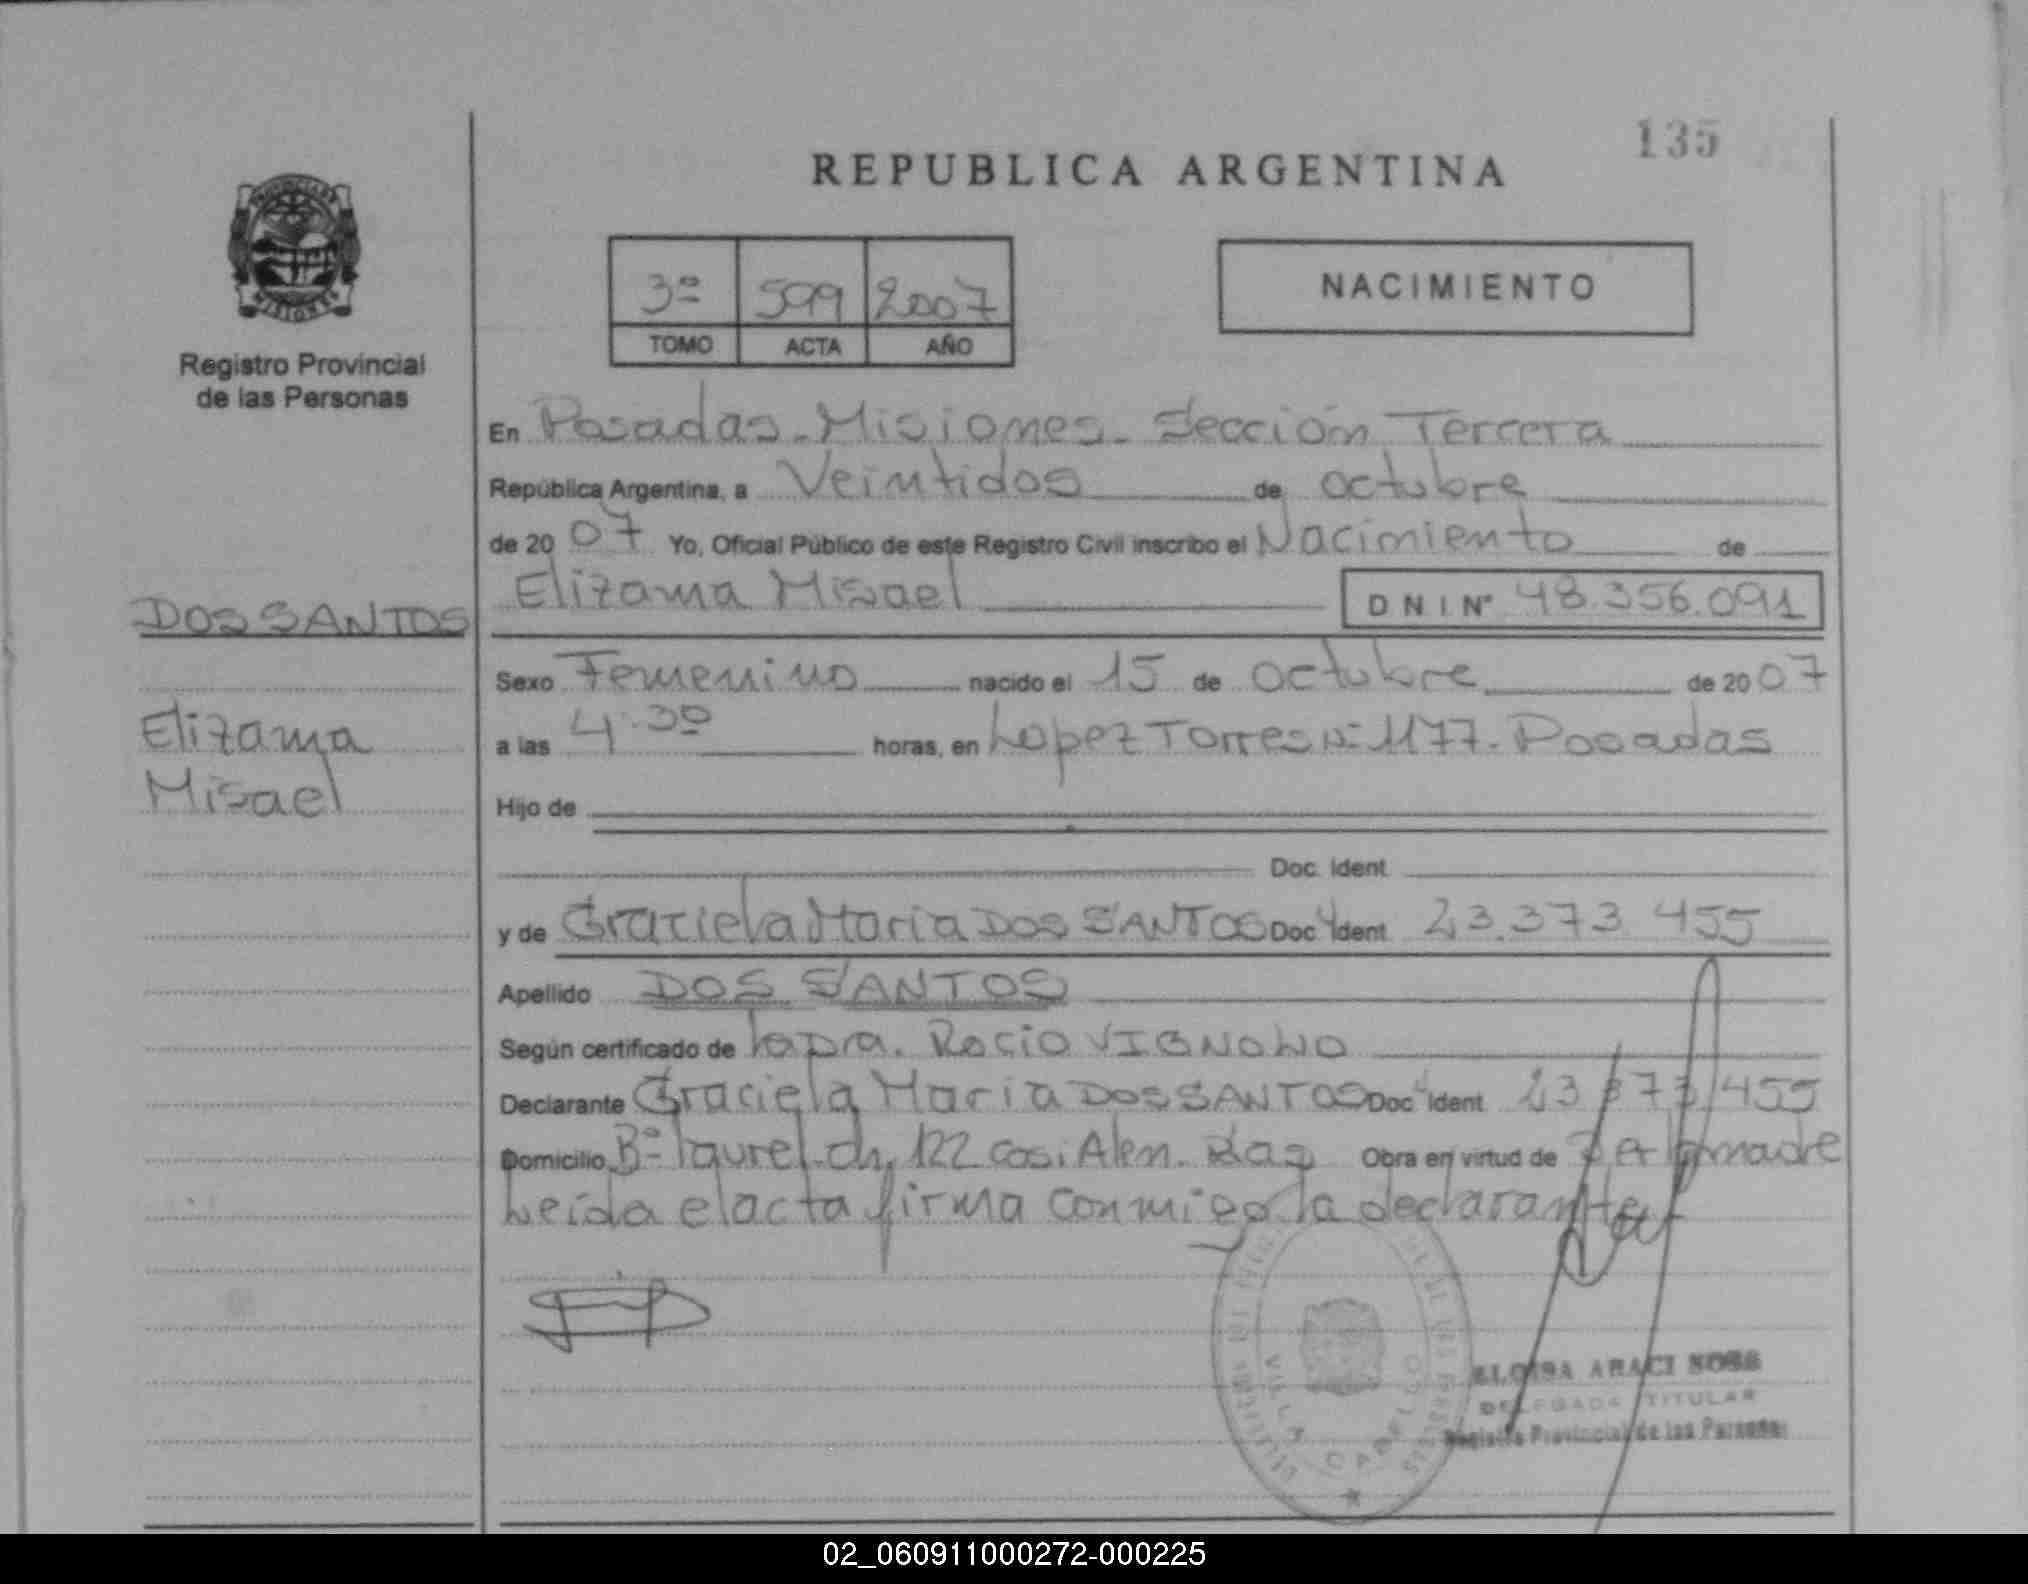 135
REPUBLICA ARGENTINA
PROVINCIA DE
MISIONES
Registro Provincial
de las Personas
3º 599 2007
TOMO ACTA AÑO
NACIMIENTO
En Posadas - Misiones - Sección Tercera
República Argentina, a Veintidos de octubre
de 2007 Yo, Oficial Público de este Registro Civil inscribo el Nacimiento de
Elizama Misael DNI Nº 48.356.091
DOS SANTOS
Elizama
Misael
Sexo Femenino nacido el 15 de octubre de 2007
a las 4.30 horas, en Lopez Torres Nº 1177 - Posadas
Hijo de
Doc. Ident
y de Graciela Maria DOS SANTOS Doc Ident 23.373.455
Apellido DOS SANTOS
Según certificado de la Dra. Rocio VIGNOLO
Declarante Graciela Maria DOS SANTOS Doc Ident 23.373.455
Domicilio Bº laurel ch, 122 casi Alen - Obra en virtud de Ser la madre
Leída el acta firma conmigo la declarante
VILLA CABELLO
ELOISA ARACI
DELEGADA TITULAR
Registro Provincial de las Personas
02_060911000272-000225